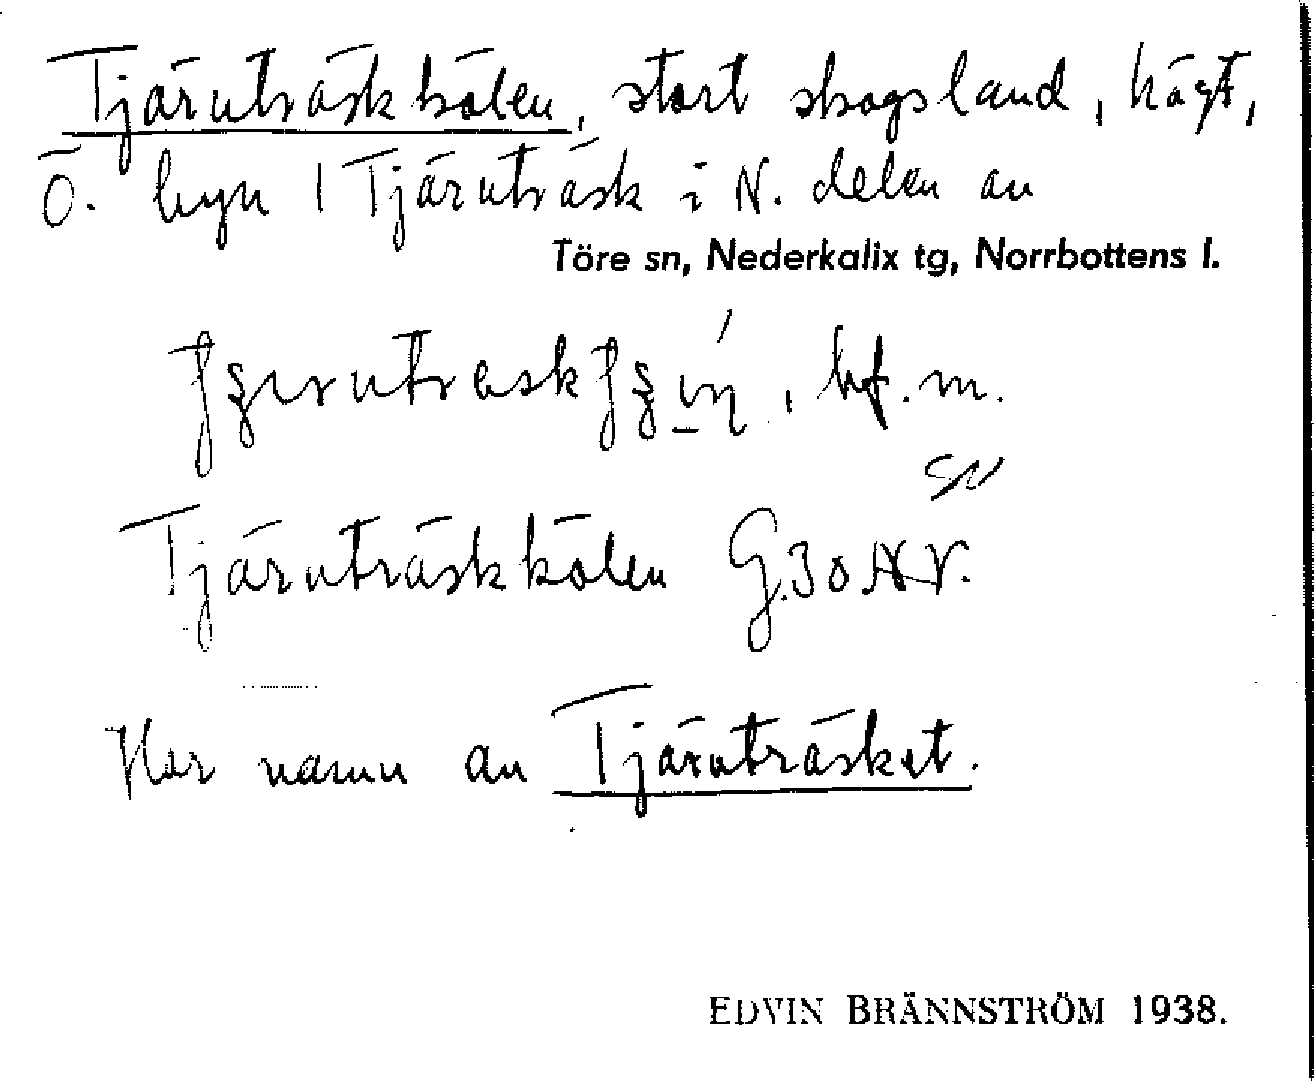 Tjärnträskkölen, stort skogsland, högt,
Ö. byn 1 Tjärnträsk i N. delen av
Töre sn, Nederkalix tg, Norrbottens l.
bf. m.
Tjärnträskkölen G.30 NV.
Har namn av Tjärnträsket.
EDVIN BRÄNNSTRÖM 1938.